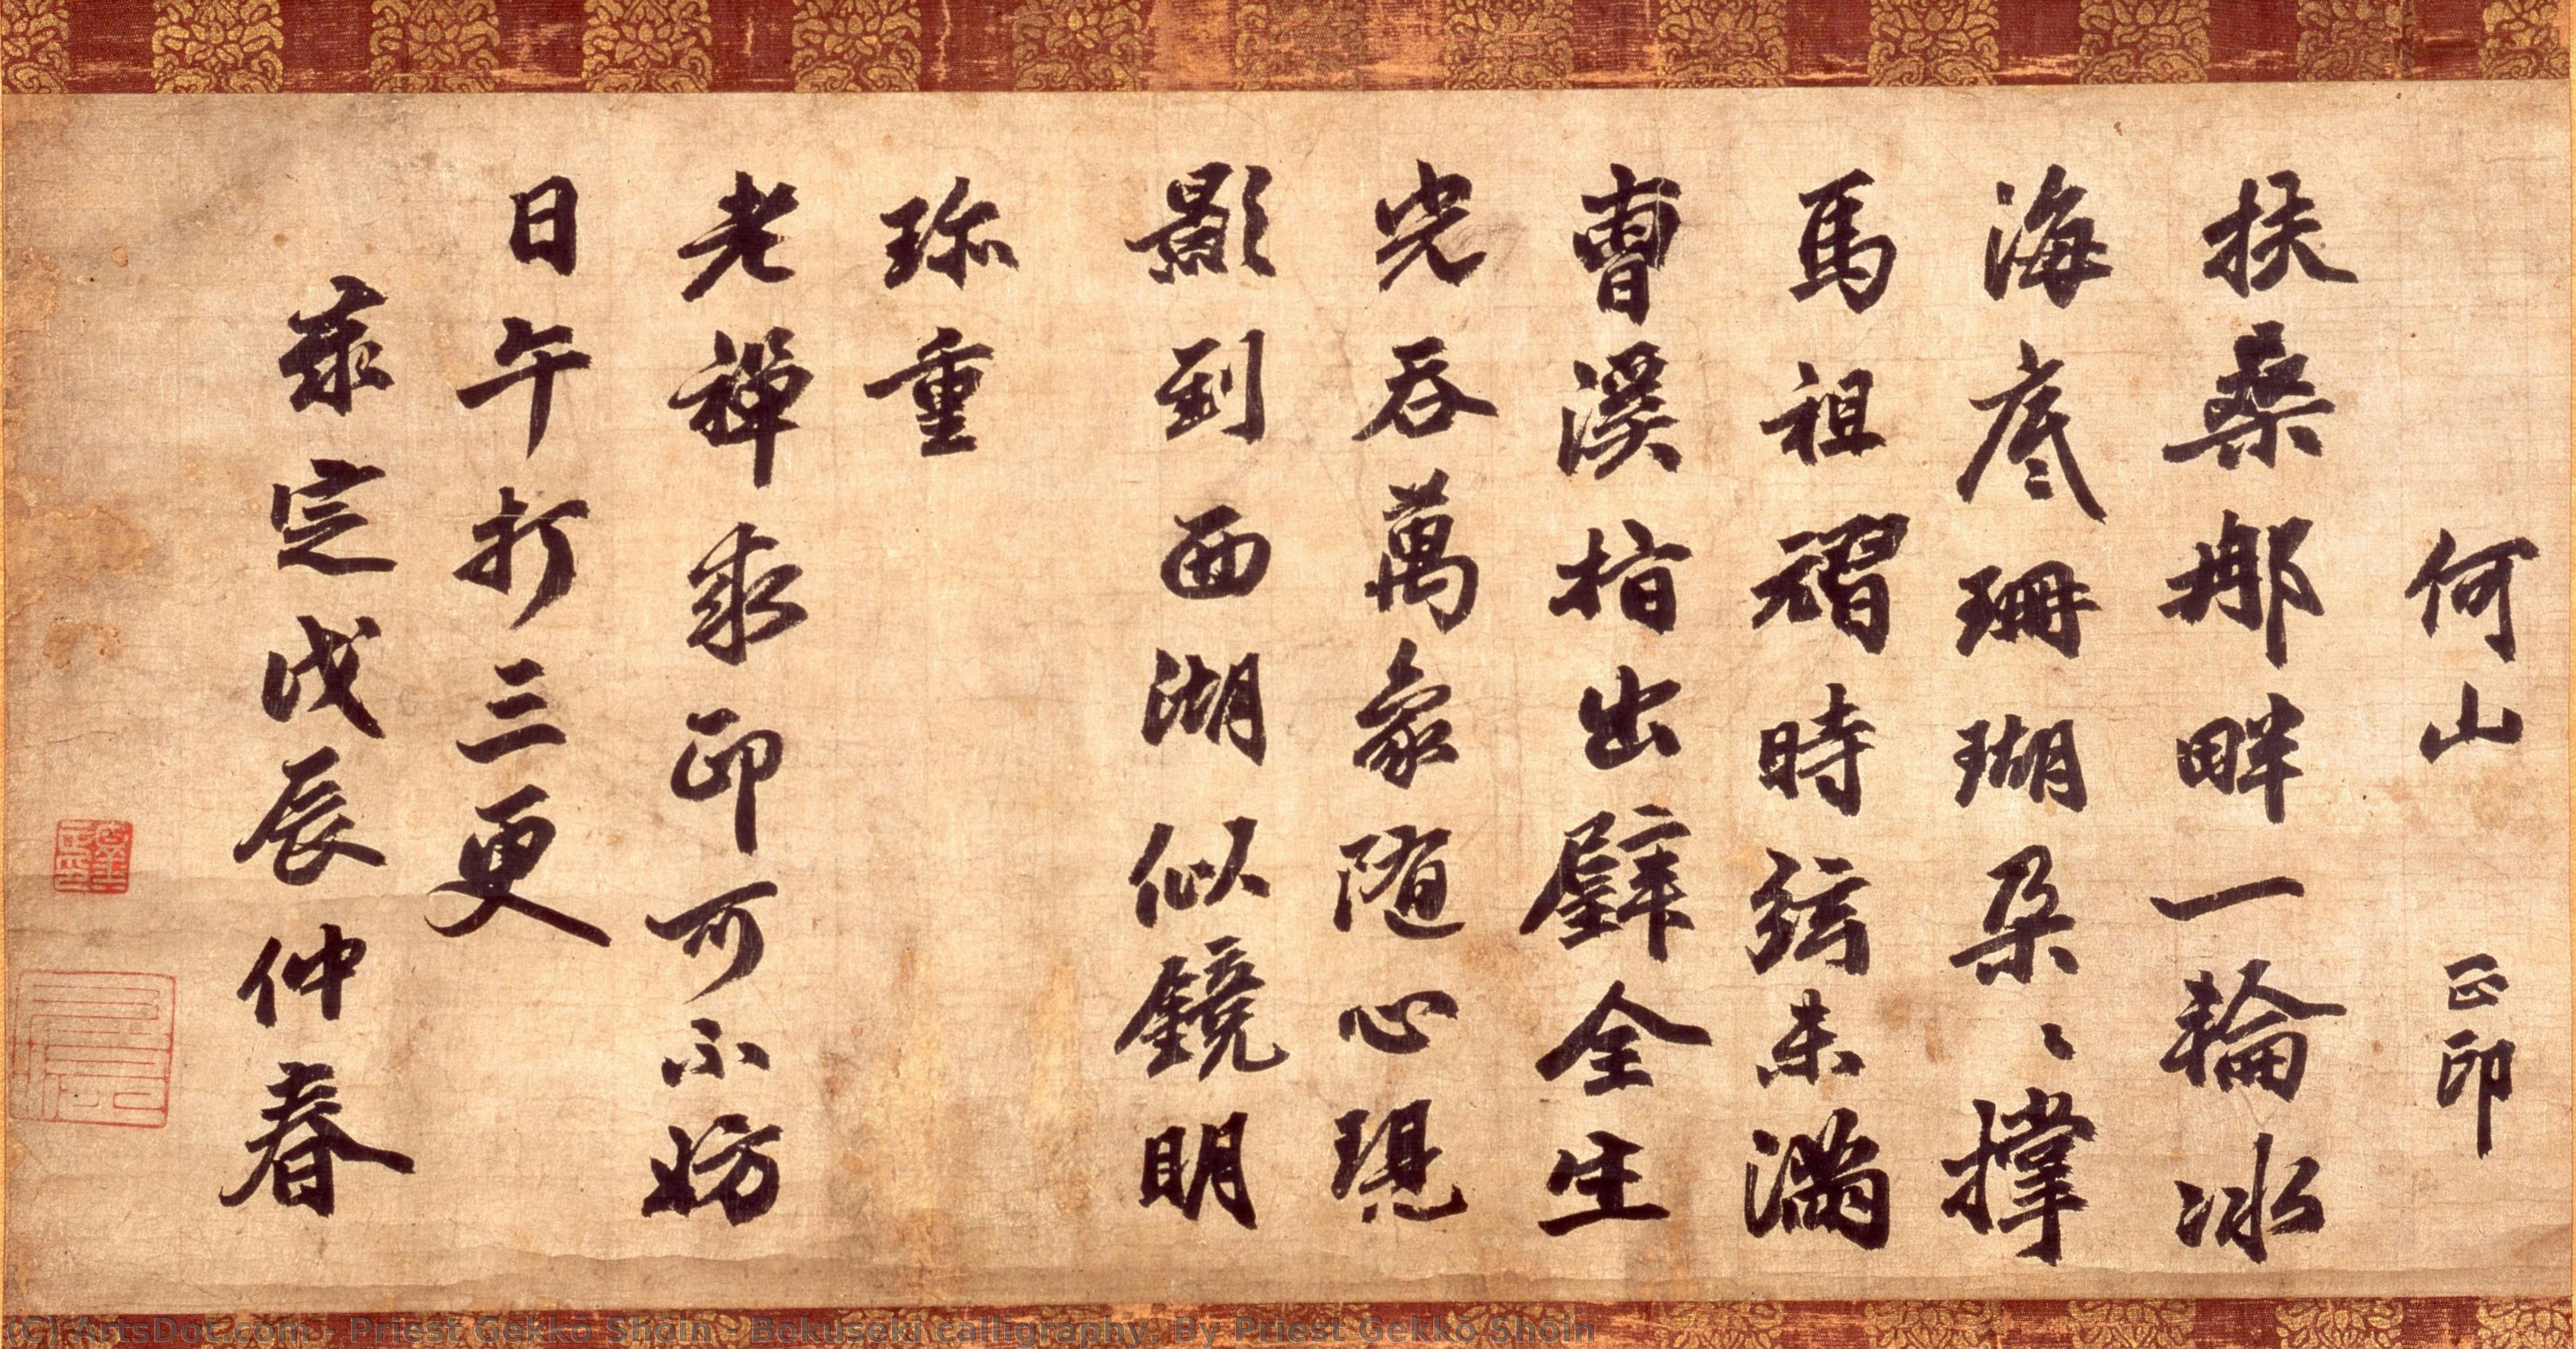 何山 正印
扶桑那畔一輪冰
海底珊瑚朵〻撑
馬祖翫時弦未滿
曺溪指出璧全生
光吞萬象随心現
影到西湖似鏡明
珎重
老禅求印可不妨
日午打三更
泰定戊辰仲春
(C) ArtsDot.com - Priest Gekkō Shōin - Bokuseki calligraphy. By Priest Gekkō Shōin